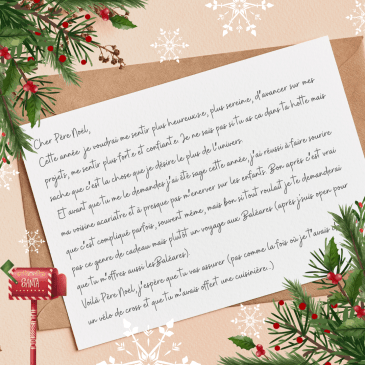 Cher Père Noël,
Cette année je voudrai me sentir plus heureux·se, plus serein·e, d'avancer sur mes
projets, me sentir plus fort·e et confiant·e. Je ne sais pas si tu as ca dans ta hotte mais
sache que c'est la chose que je désire le plus de l'univers.
Et avant que tu me le demandes j'ai été sage cette année, j'ai réussi à faire sourire
ma voisine acariatre et à presque pas m'énerver sur les enfants. Bon après c'est vrai
que c'est compliqué parfois, souvent même, mais bon si tout roulait je te demanderai
pas ce genre de cadeau mais plutôt un voyage aux Baléares (après j'suis open pour
que tu m'offres aussi les Baléares).
Voilà Père Noël, j'espère que tu vas assurer (pas comme la fois où je t'avais
un vélo de cross et que tu m'avais offert une cuisinière..)
SANTA